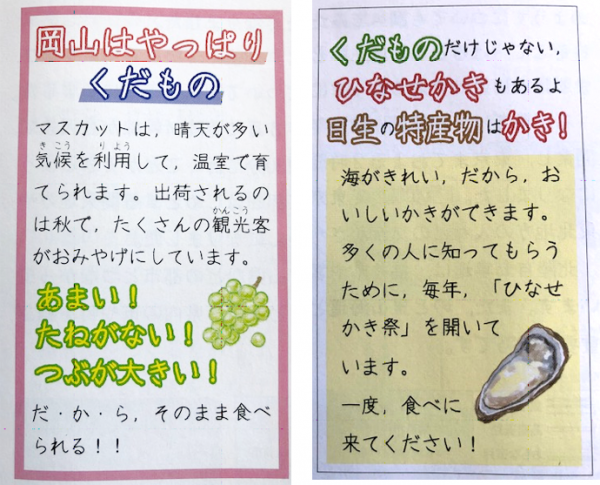 岡山はやっぱり
くだもの
マスカットは，晴天が多い
気候を利用して，温室で育
てられます。出荷されるの
は秋で，たくさんの観光客
がおみやげにしています。
あまい！
たねがない！
つぶが大きい！
だ・か・ら，そのまま食べ
られる！！
くだものだけじゃない，
ひなせかきもあるよ
日生の特産物はかき！
海がきれい，だから，お
いしいかきができます。
多くの人に知ってもらう
ために，毎年，「ひなせ
かき祭」を開いて
います。
一度，食べに
来てください！